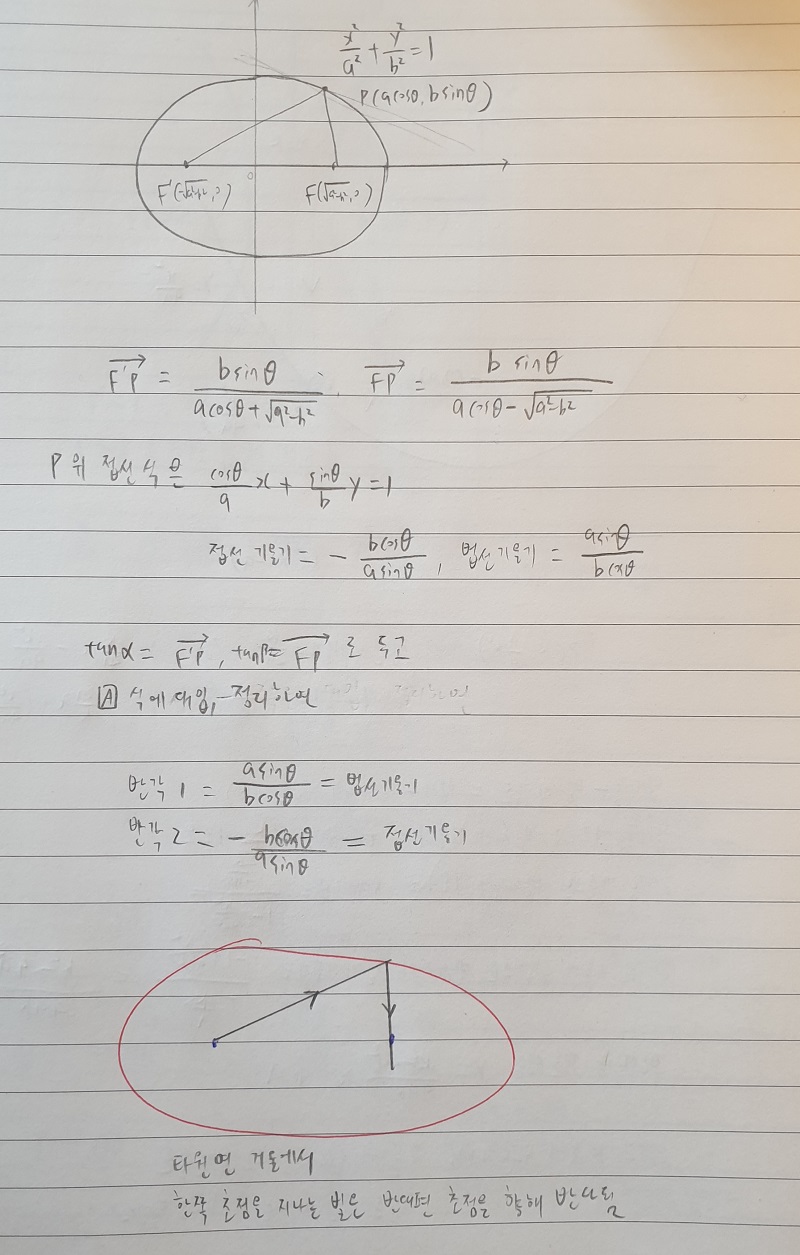 x²/a² + y²/b² = 1
P(acosθ, bsinθ)
0
F'(-√a²-b², 0) F(√a²-b², 0)
F'P→ = bsinθ / (acosθ + √a²-b²) , FP→ = b sinθ / (acosθ - √a²-b²)
P 위 접선 식은 cosθ/a x + sinθ/b y = 1
접선 기울기 = - bcosθ/asinθ , 법선기울기 = asinθ/bcosθ
tanα = F'P→ , tanβ = FP→ 로 두고
A 식에 대입, 정리하면
반각 1 = asinθ/bcosθ = 법선기울기
반각 2 = - bcosθ/asinθ = 접선기울기
타원면 거울에서
한쪽 초점을 지나는 빛은 반대편 초점을 향해 반사됨